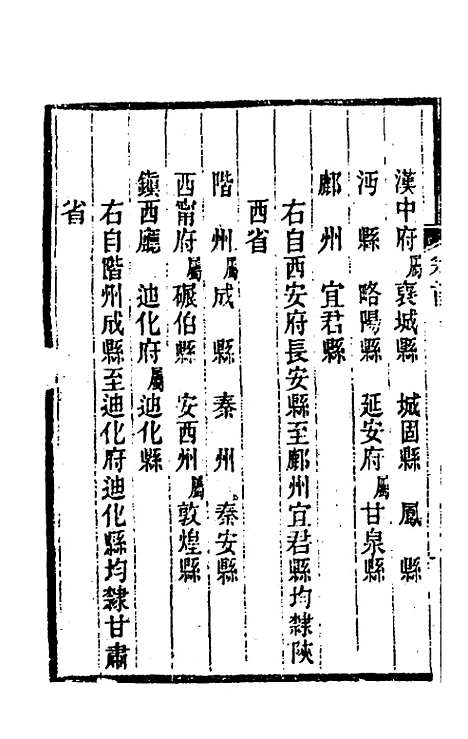 漢中府屬襄城縣 城固縣 鳳縣
沔縣 略陽縣 延安府屬甘泉縣
鄜州 宜君縣
右自西安府長安縣至鄜州宜君縣均隸陝
西省
階州屬成縣 秦州屬秦安縣
西甯府屬碾伯縣 安西州屬敦煌縣
鎭西廳 迪化府屬迪化縣
右自階州成縣至迪化府迪化縣均隸甘肅
省